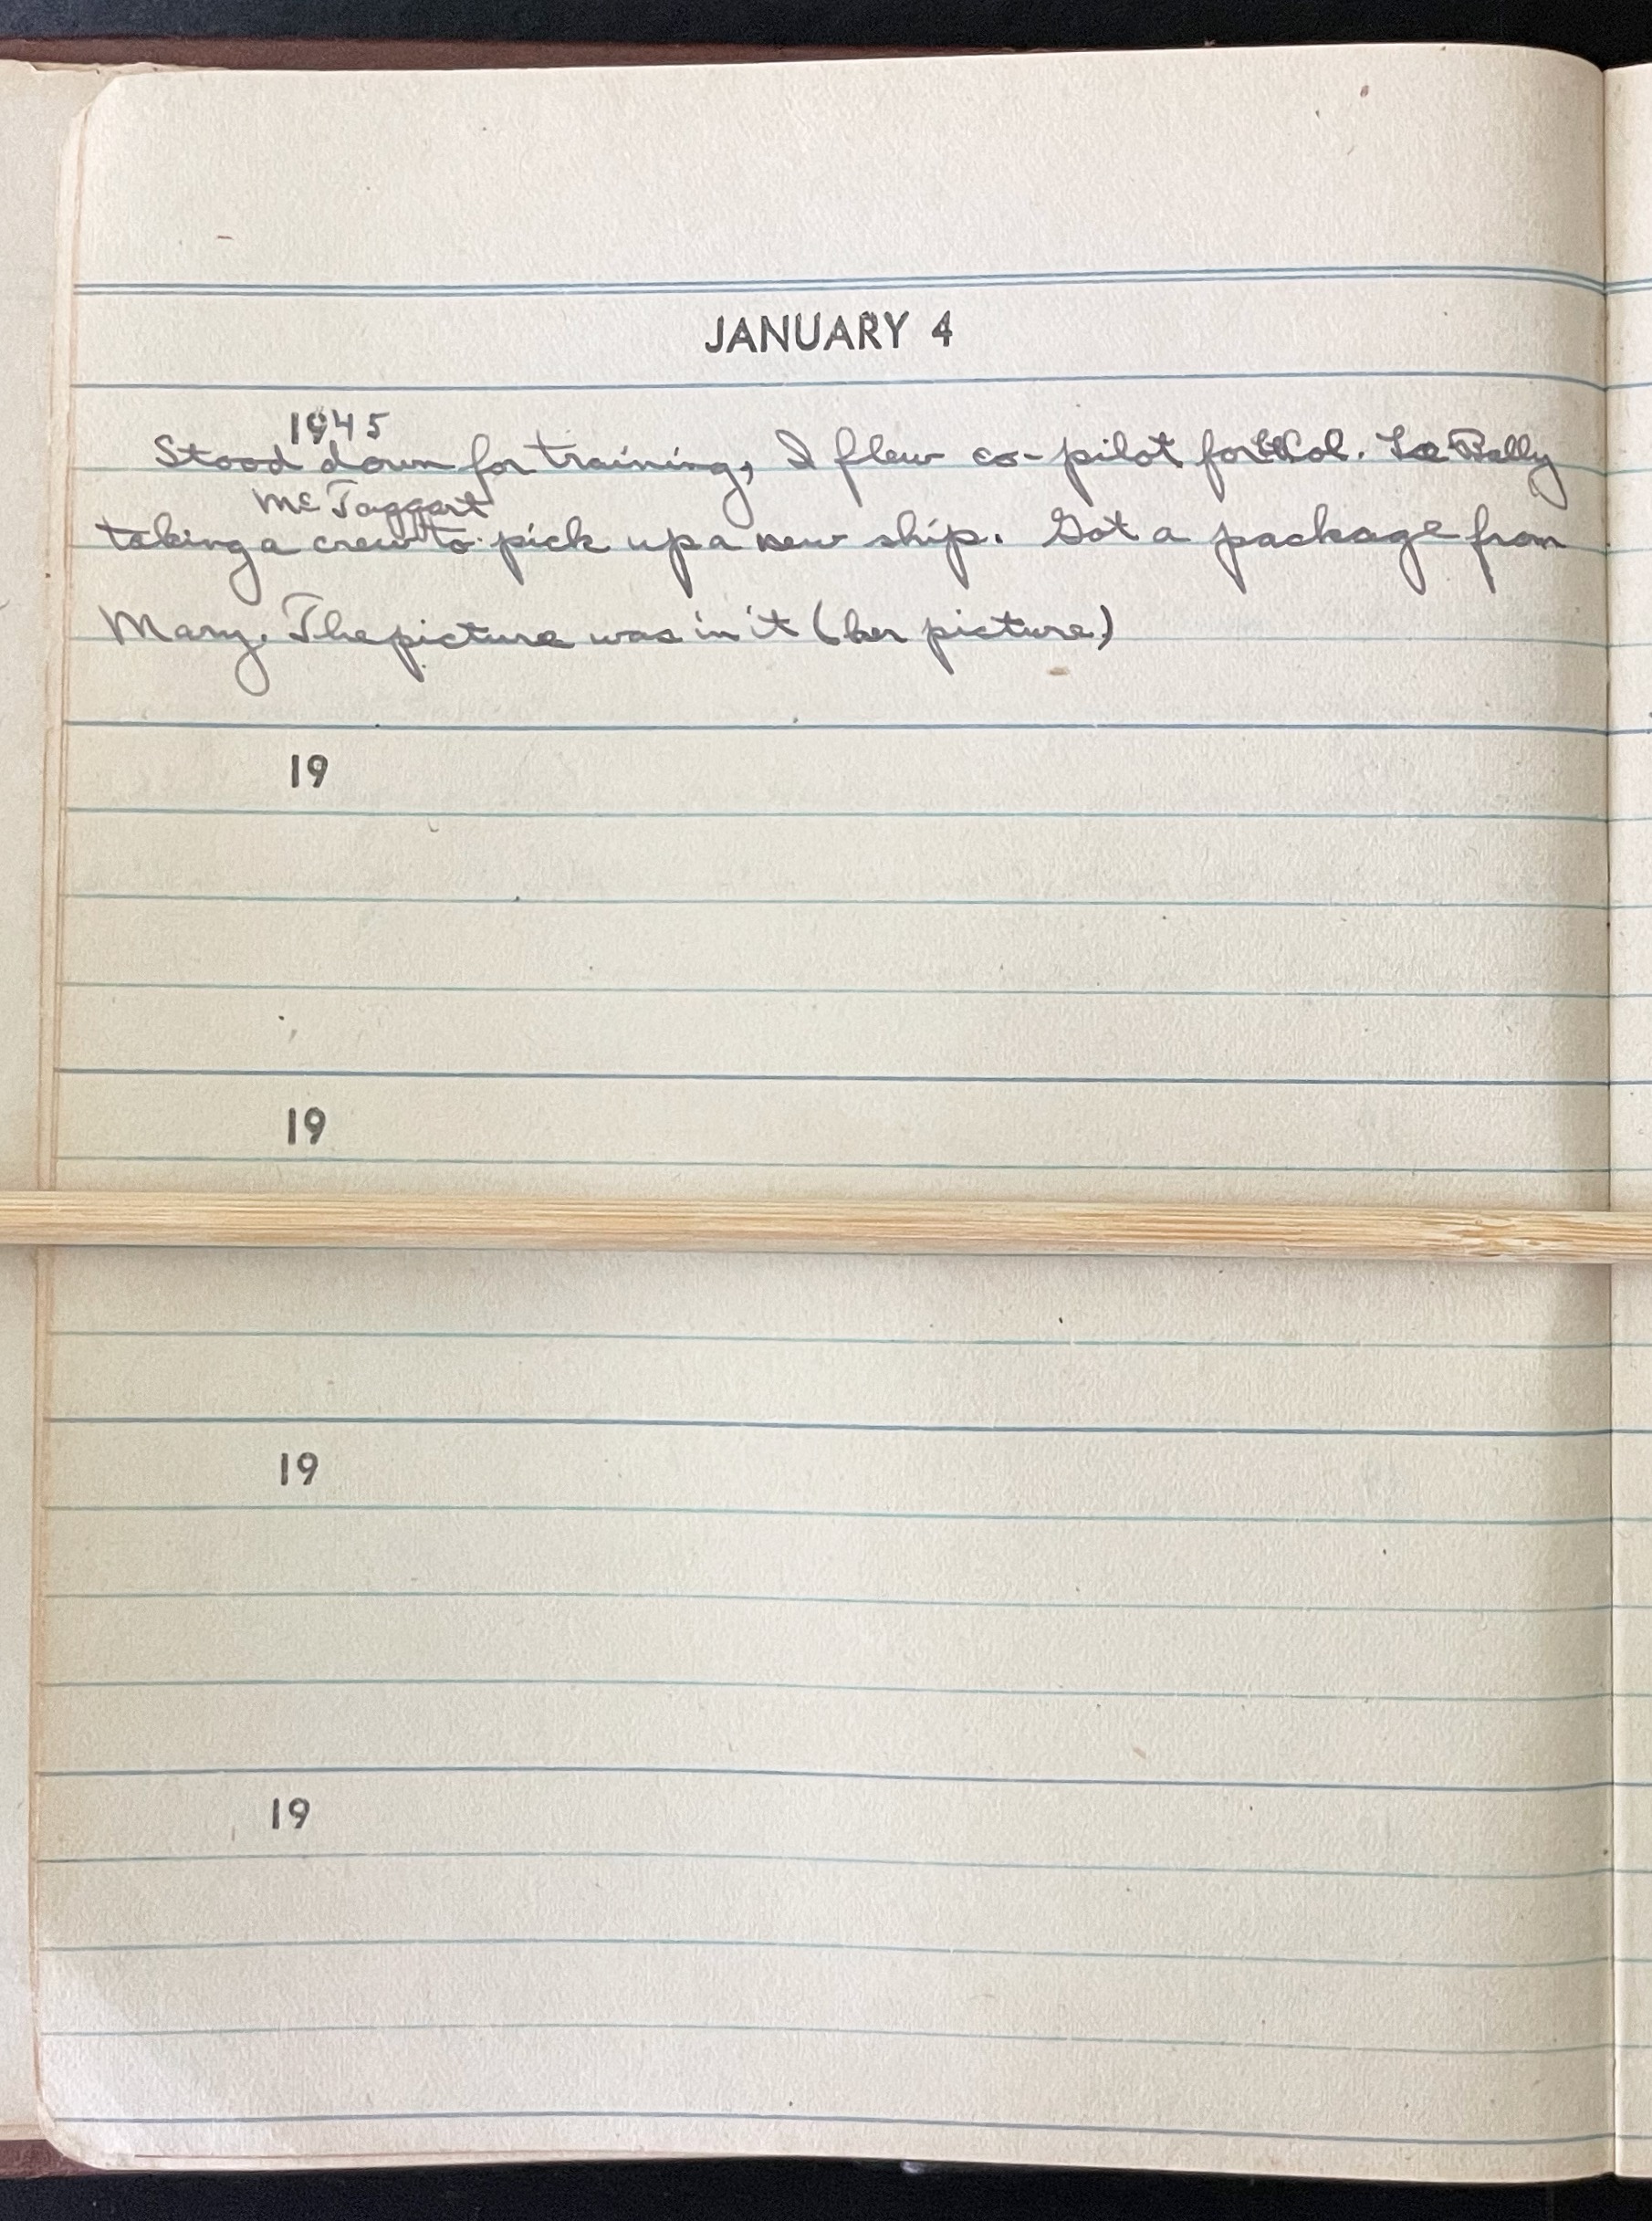 JANUARY 4
1945
Stood down for training, I flew co-pilot for Lt Col. La Bally
McTaggart
taking a crew to pick up a new ship. Got a package from
Mary. The picture was in it (her picture)
19
19
19
19